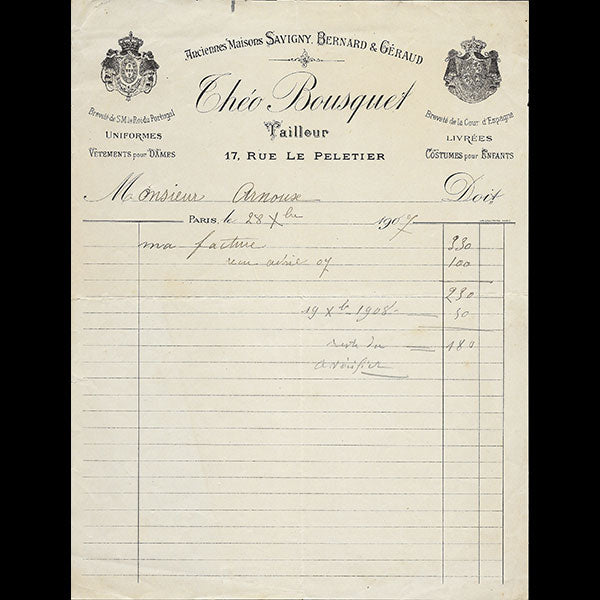 Anciennes Maisons SAVIGNY, BERNARD & GÉRAUD
Théo Bousquet
Tailleur
17, RUE LE PELETIER
Breveté de S.M. le Roi du Portugal
UNIFORMES
VÊTEMENTS pour DAMES
Breveté de la Cour d'Espagne
LIVRÉES
COSTUMES pour ENFANTS
Monsieur Arnoux Doit
PARIS, le 28 Xbre 1907
ma facture 330
reçu avril 07 100
230
19 Xb 1908 50
reste du 180